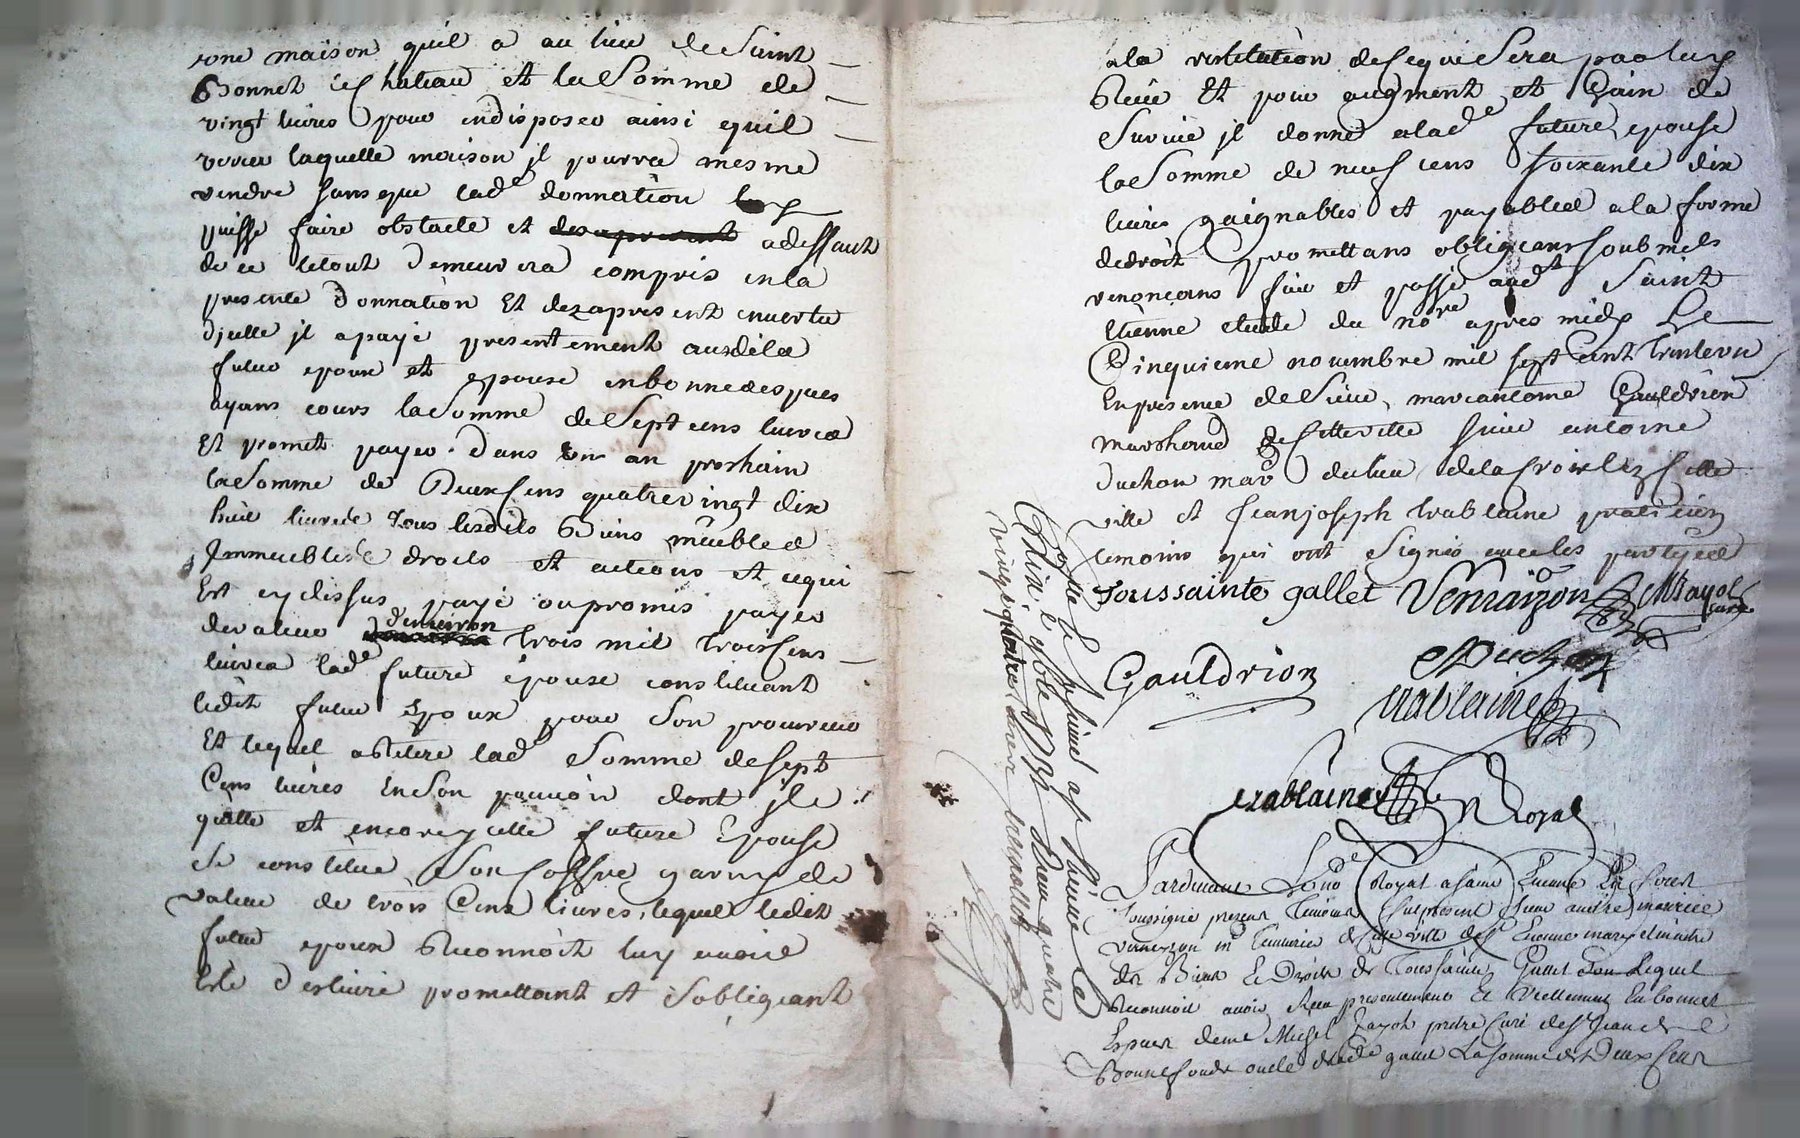 une maison quil a au lieu de Saint
Bonnet le Chateau et la Somme de
vingt livres pour endisposer ainsi quil
verra laquelle maison jl pourra mesme
vendre sans que lade donnation luy
puisse faire obstacle et adeffaut
de ce letout demeurera compris enla
presente donnation Et dezapresent envertu
djcelle jl apayé presentement ausdits
futur epoux et epouse enbonnes
ayans cours la Somme de Sept cens livres
Et promet payer dans un an prochain
la Somme de Deux Cens quatrevingt dix
huit livres Tous lesdits Biens meubles
Jmmeubles droits et actions et cequi
Est cydessus payé oupromis payer
devaleur denviron trois mil trois Cens
livres lade future épouse constituant
ledit futur Epoux pour Son procureur
Et lequel aRetiré lade Somme de Sept
Cens livres En Son pouvoir dont jl
quitte et encore ycelle future Epouse
Se constitue Son Coffre garny de
valeur de trois Cens livres, lequel ledit
futur epoux Reconnoit luy avoir
Esté deslivré promettant et Sobligeant
ala restitution de Ce qui Sera par luy
Receu Et pour augment et Gain de
Survie jl donne alade future epouse
la Somme de neuf cens Soixante dix
livres gaignables et payables ala forme
dedroit promettans obligeans Soubmets
renonçans fait et passé audt Saint
Etienne etude du nore apres midy Le
Cinquieme novembre mil sept cent trenteun
En presence de Sieur marcantoine Gauldrion
marchand de Cette ville Sieur antoine
Duchon mard du lieu de la Croix lez Cette
ville et Jeanjoseph trablaine praticien
temoins qui ont Signés avec les partyes
Toussainte gallet Verrayzon M Bayol
curé
Gauldrion Duchon
trablaine
trablaine Royal
Pardevant Le no Royal a Saint Etienne En forest
Soussigné presens Temoins fut present Sieur andré maurice
verrayzon md de cette ville de St Etienne mary et maitre
des Biens Et Droits de Toussainte Gallet Lequel
Reconnoit avoir Receu presentement Et Reellement En bonnes
Especes de me Michel Bayol pretre Curé de St Jean de
Bonnefonds oncle de lade gallet La Somme de Deux Cens
Controllé et Insinué at Etienne le
vingt quatre